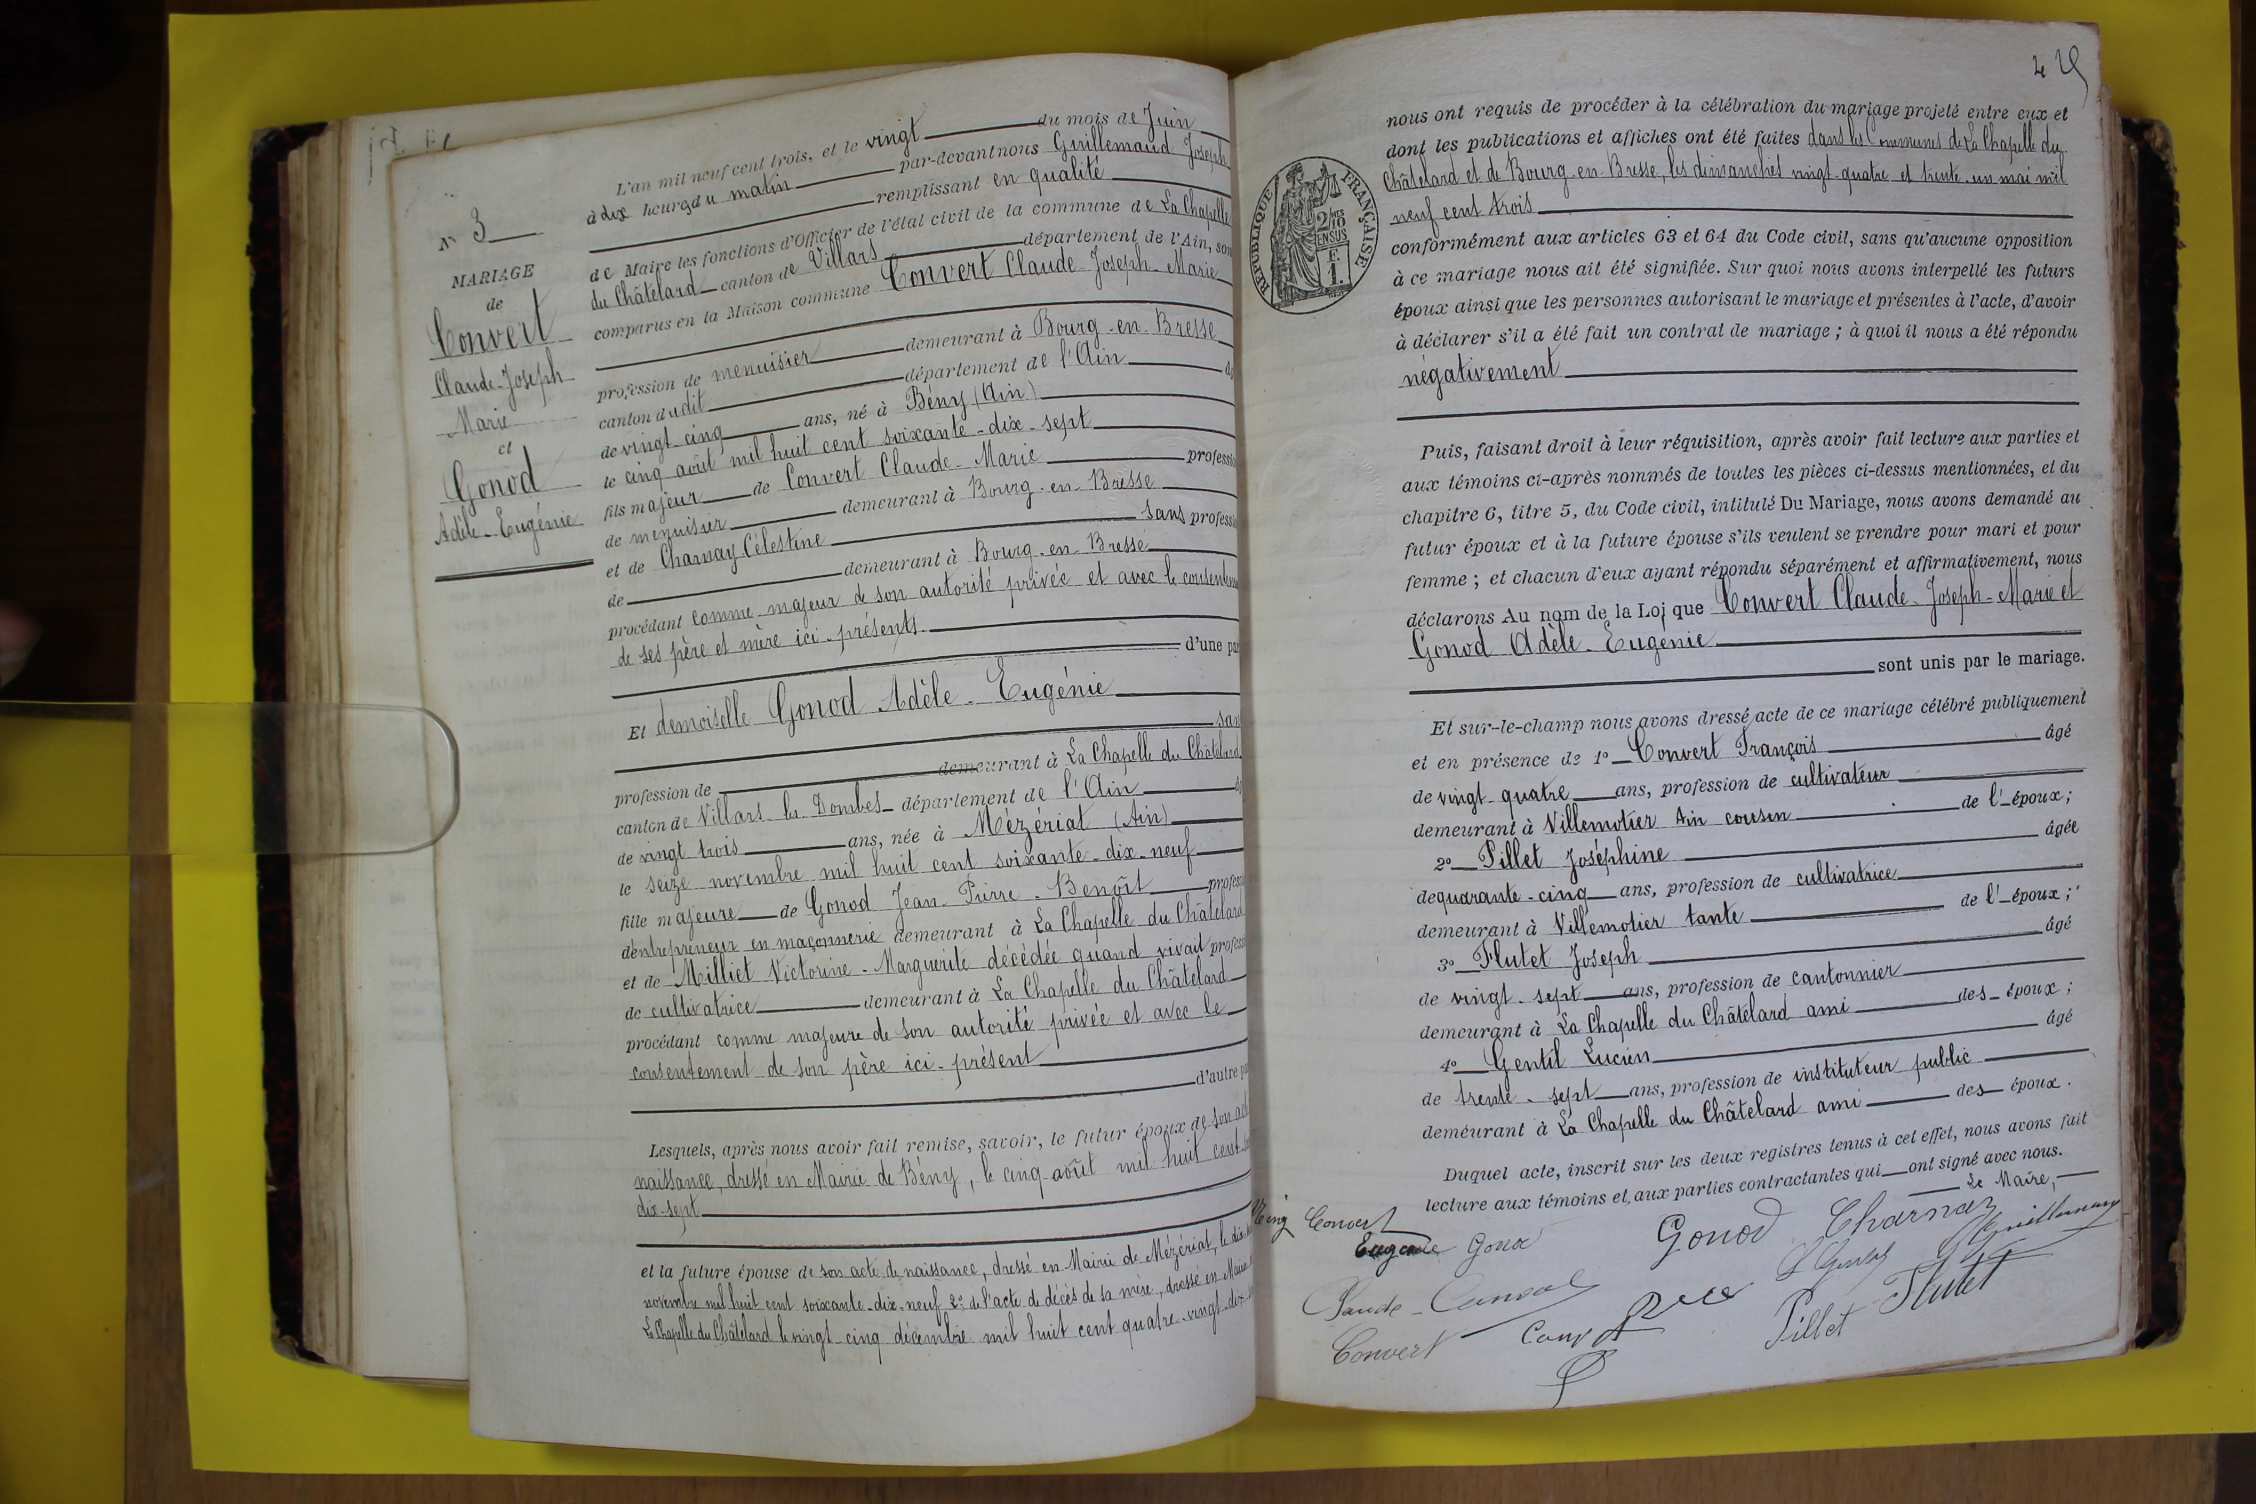 N° 3
MARIAGE
de
Convert
Claude-Joseph
Marie
et
Gonod
Adèle-Eugénie
L'an mil neuf cent trois, et le vingt du mois de Juin
à dix heures du matin par-devant nous Guillemaud Joseph
remplissant en qualité
de Maire les fonctions d'Officier de l'état civil de la commune de La Chapelle
du Châtelard canton de Villars département de l'Ain, son
comparus en la Maison commune Convert Claude-Joseph-Marie
profession de menuisier demeurant à Bourg-en-Bresse
canton dudit département de l'Ain
de vingt cinq ans, né à Bény (Ain)
le cinq août mil huit cent soixante-dix-sept
fils majeur de Convert Claude-Marie professi
de menuisier demeurant à Bourg-en-Bresse
et de Charnay Célestine sans professi
de demeurant à Bourg-en-Bresse
procédant comme majeur de son autorité privée et avec le consentem
de ses père et mère ici-présents
d'une par
Et demoiselle Gonod Adèle-Eugénie
san
profession de demeurant à La Chapelle du Châtelard
canton de Villars les Dombes département de l'Ain
de vingt trois ans, née à Mézériat (Ain)
le seize novembre mil huit cent soixante-dix-neuf
fille majeure de Gonod Jean-Pierre-Benoît profess
d'entrepreneur en maçonnerie demeurant à La Chapelle du Châtelard
et de Milliet Victorine-Marguerite décédée quand vivait profess
de cultivatrice demeurant à La Chapelle du Châtelard
procédant comme majeure de son autorité privée et avec le
consentement de son père ici-présent
d'autre pa
Lesquels, après nous avoir fait remise, savoir, le futur époux de son act
naissance, dressé en Mairie de Bény, le cinq août mil huit cent
dix-sept
et la future épouse de son acte de naissance, dressé en Mairie de Mézériat, le dix
novembre mil huit cent soixante-dix-neuf 2° de l'acte de décès de sa mère, dressé en Mairie
La Chapelle du Châtelard le vingt-cinq décembre mil huit cent quatre-vingt-dix
429
RÉPUBLIQUE FRANÇAISE
2/10
EN SUS
1 F.
nous ont requis de procéder à la célébration du mariage projeté entre eux et
dont les publications et affiches ont été faites dans les Communes de La Chapelle du
Châtelard et de Bourg-en-Bresse, les dimanches vingt-quatre et trente-un mai mil
neuf cent trois
conformément aux articles 63 et 64 du Code civil, sans qu'aucune opposition
à ce mariage nous ait été signifiée. Sur quoi nous avons interpellé les futurs
époux ainsi que les personnes autorisant le mariage et présentes à l'acte, d'avoir
à déclarer s'il a été fait un contrat de mariage ; à quoi il nous a été répondu
négativement
Puis, faisant droit à leur réquisition, après avoir fait lecture aux parties et
aux témoins ci-après nommés de toutes les pièces ci-dessus mentionnées, et du
chapitre 6, titre 5, du Code civil, intitulé Du Mariage, nous avons demandé au
futur époux et à la future épouse s'ils veulent se prendre pour mari et pour
femme ; et chacun d'eux ayant répondu séparément et affirmativement, nous
déclarons Au nom de la Loi que Convert Claude-Joseph-Marie et
Gonod Adèle-Eugénie
sont unis par le mariage.
Et sur-le-champ nous avons dressé acte de ce mariage célébré publiquement
et en présence de 1° Convert François âgé
de vingt-quatre ans, profession de cultivateur
demeurant à Villemotier Ain cousin de l'époux ;
2° Pillet Joséphine âgée
de quarante-cinq ans, profession de cultivatrice
demeurant à Villemotier tante de l'époux ;
3° Flutet Joseph âgé
de vingt-sept ans, profession de cantonnier
demeurant à La Chapelle du Châtelard ami des époux ;
4° Gentil Lucien âgé
de trente-sept ans, profession de instituteur public
demeurant à La Chapelle du Châtelard ami des époux.
Duquel acte, inscrit sur les deux registres tenus à cet effet, nous avons fait
lecture aux témoins et aux parties contractantes qui ont signé avec nous.
Le Maire,
Convert Gonod Charnay Guillemaud
Eugénie Gonod
Flutet
Convert Pillet